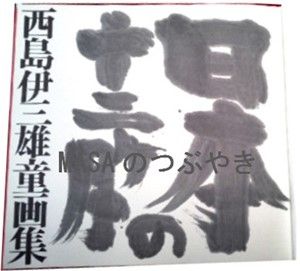 日本の
十二ヶ月
西島伊三雄童画集
MASAのつぶやき